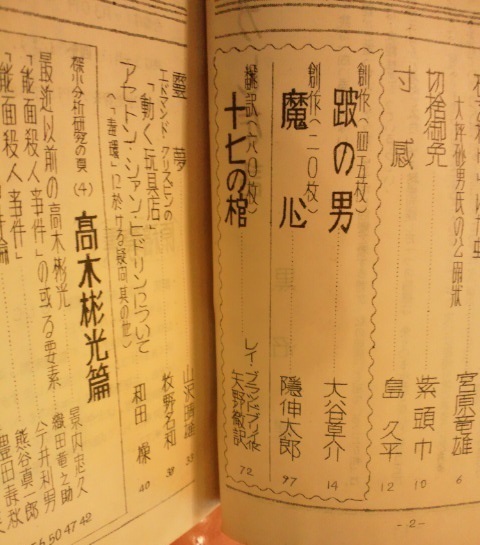 大坪砂男氏の公開状
宮原竜雄 6
切捨御免 紫頭巾 10
寸感 島久平 12
創作(四五枚)
跛の男 大谷羊介 14
創作(二〇枚)
魔心 隠伸太郎 97
飜訳(八〇枚)
十七の棺 レイ・ブランドフリイ作 矢野徹訳 72
-2-
霊夢 山沢晴雄 33
エドマンド・クリスピンの
「動く玩具店」 牧野名和 38
アセトン・シアン・ヒドリンについて
(「毒環」に於ける疑問其の他) 和田 操 40
探小分析研究の頁(4) 高木彬光篇
最近以前の高木彬光
「能面殺人事件」の或る要素 織田竜之助
「能面殺人事件」 今井利男
「能面殺人事件」論 熊谷真一郎
豊田寿秋
47 42
50